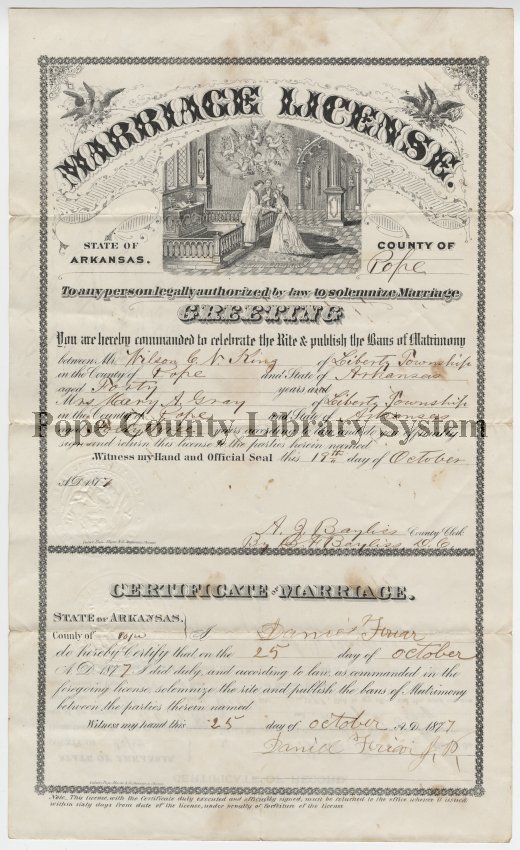 MARRIAGE LICENSE.
STATE OF ARKANSAS.
COUNTY OF Pope
To any person legally authorized by law to solemnize Marriage
GREETING
You are hereby commanded to celebrate the Rite & publish the Bans of Matrimony
between Mr. Wilson C. N. King of Liberty Township
in the County of Pope and State of Arkansas
aged Forty years and
Mrs Mary A. Gray Liberty Township
in the County of Pope and State of Arkansas
Pope County Library System
according to law and
sign and return this license to the parties herein named
Witness my Hand and Official Seal this 19th day of October
A.D. 1877
A. J. Bayliss County Clerk
By B. F. Bayliss D. C.
CERTIFICATE OF MARRIAGE.
STATE OF ARKANSAS.
County of Pope I Daniel Friar
do hereby Certify that on the 25 day of October
A.D. 1877 I did duly, and according to law, as commanded in the
foregoing license, solemnize the rite and publish the bans of Matrimony
between the parties therein named
Witness my hand this 25 day of October A.D. 1877
Daniel Friar J. P.
Note. This License, with the Certificate duly executed and officially signed, must be returned to the office whence it issued
within sixty days from date of the license, under penalty of forfeiture of the License